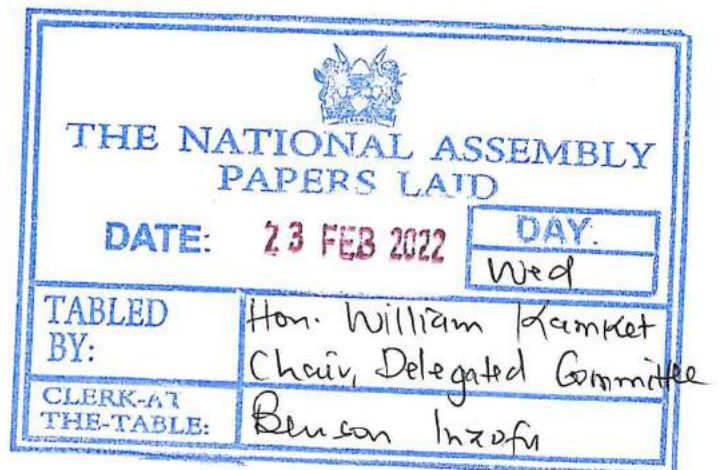 THE NATIONAL ASSEMBLY
PAPERS LAID
DATE: 23 FEB 2022
DAY:
Wed
TABLED BY:
Hon. William Kamket
Chair, Delegated Committee
CLERK-AT THE-TABLE:
Benson Inzofu